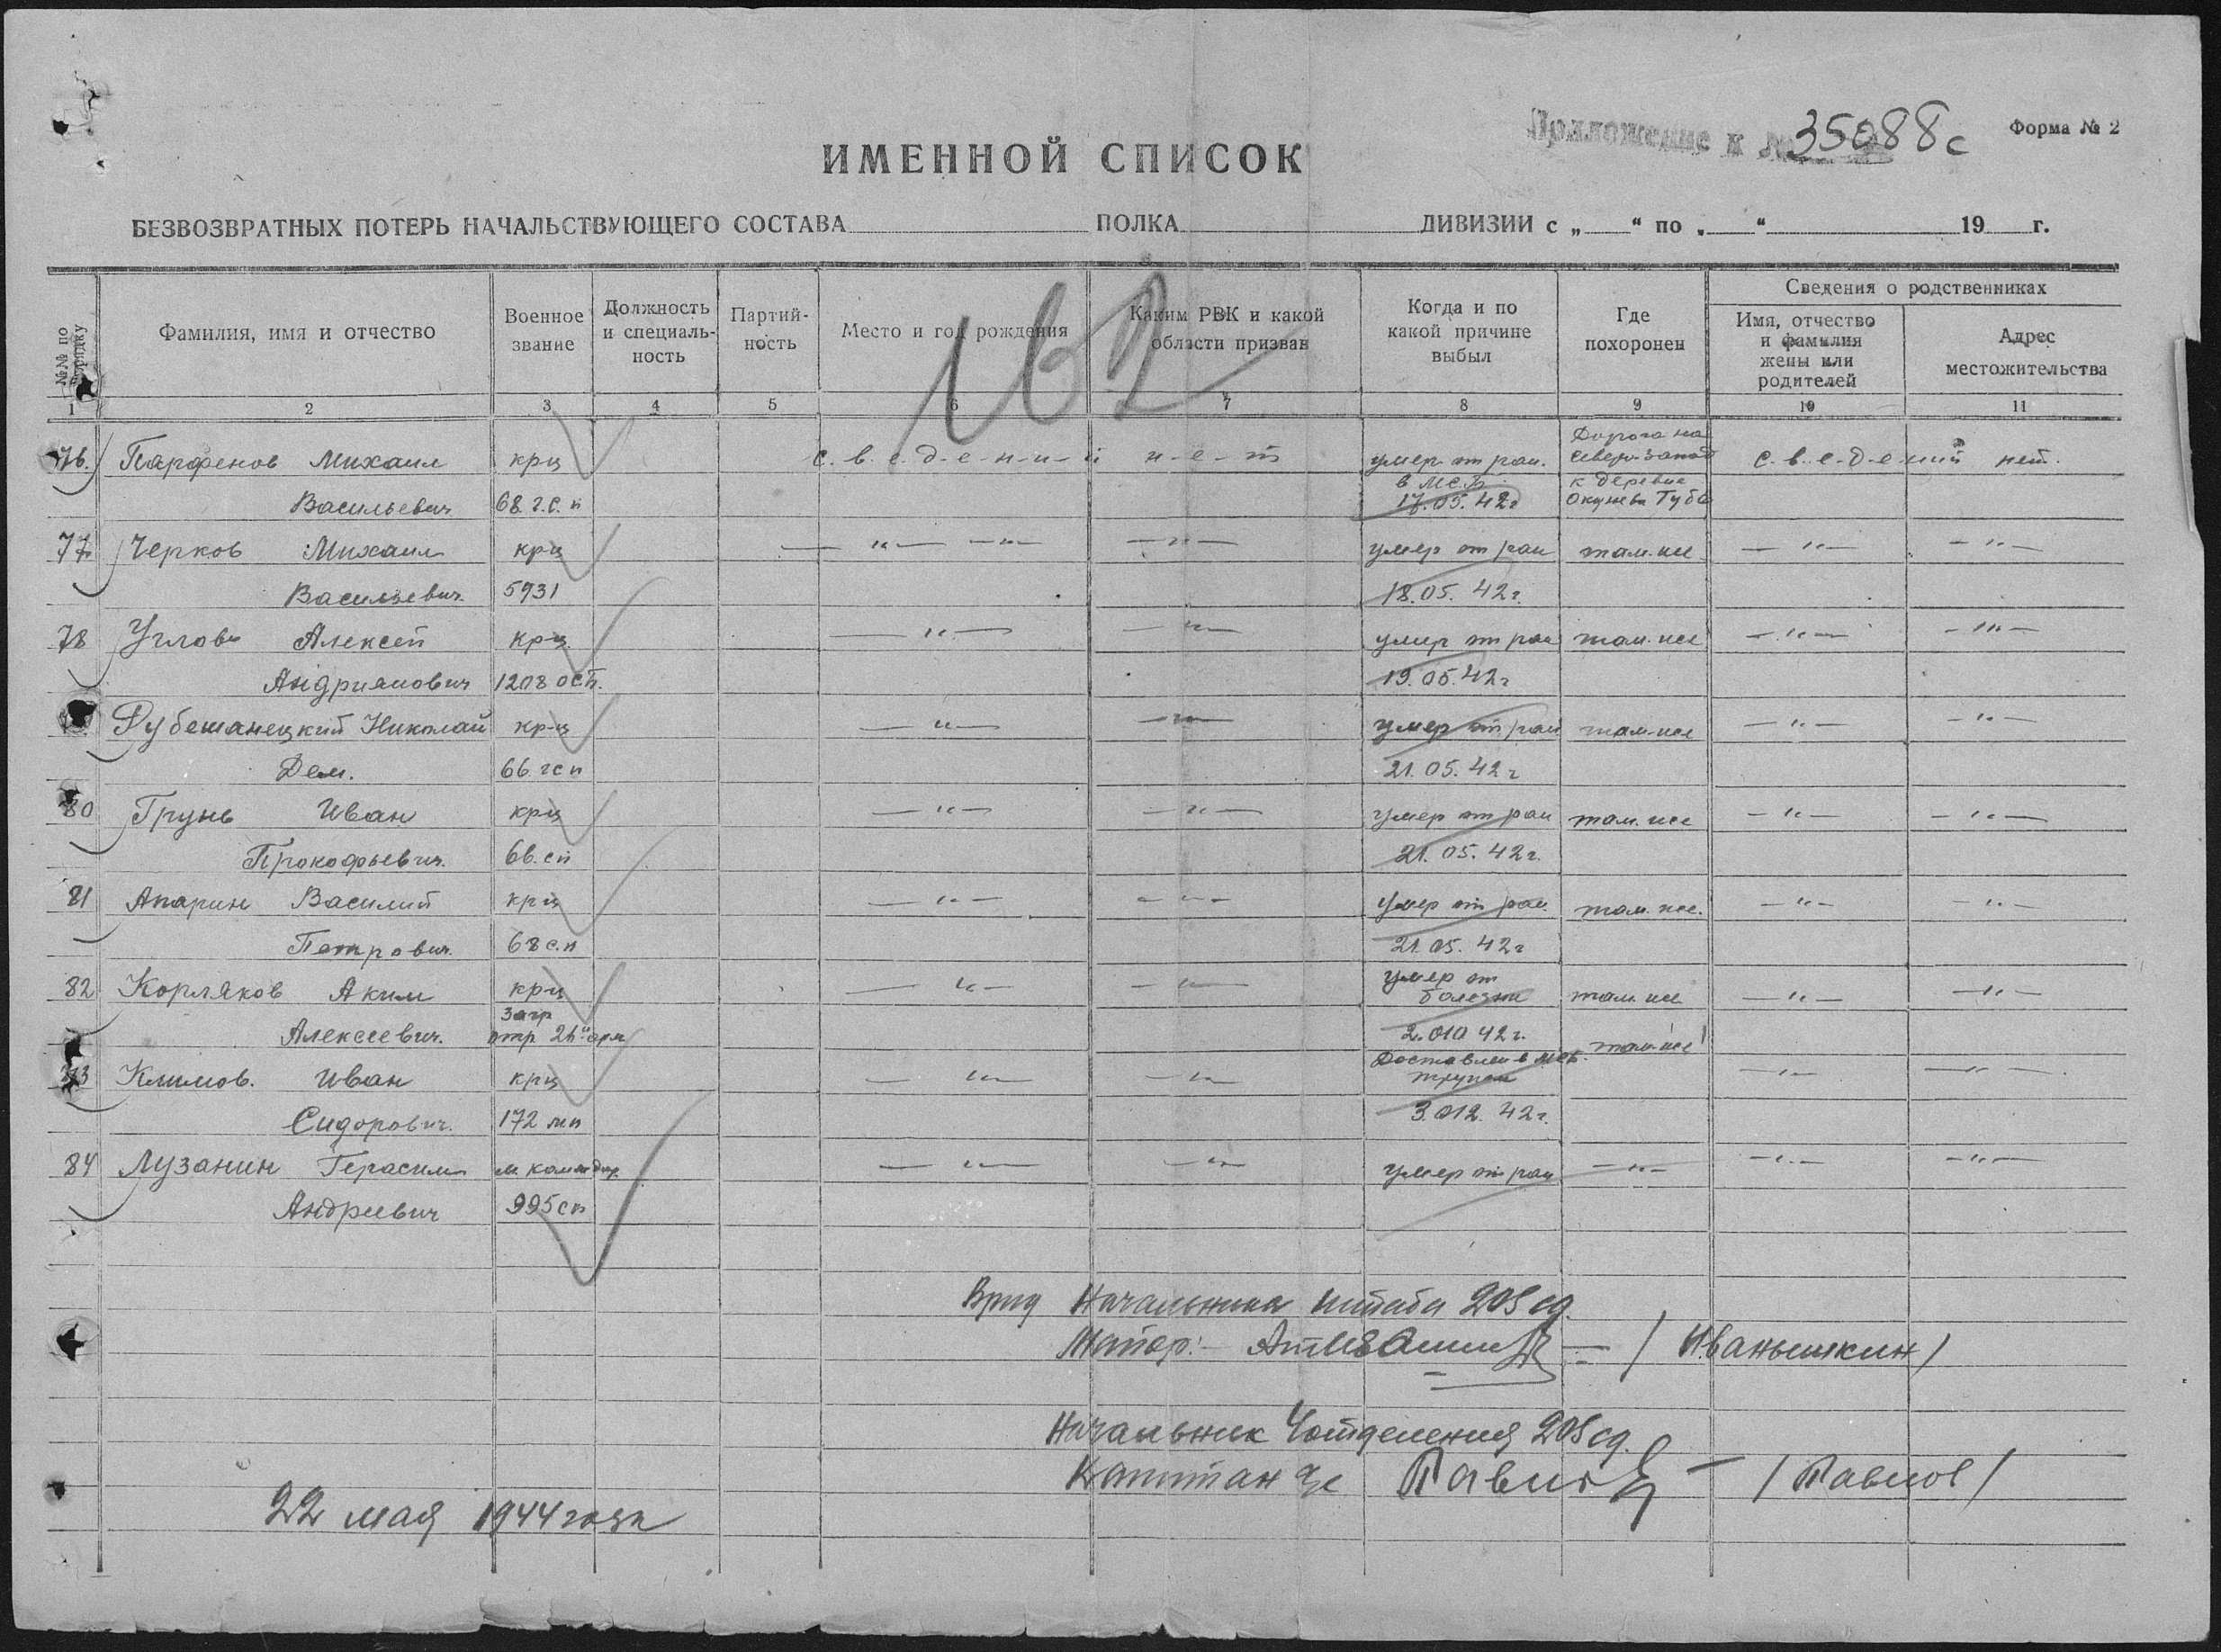 Приложение к № 35088с Форма № 2
ИМЕННОЙ СПИСОК
БЕЗВОЗВРАТНЫХ ПОТЕРЬ НАЧАЛЬСТВУЮЩЕГО СОСТАВА ПОЛКА ДИВИЗИИ с „ “ по „ “ 19 г.
№№ по порядку
Фамилия, имя и отчество
Военное звание
Должность и специаль-ность
Партий-ность
Место и год рождения
Каким РВК и какой области призван
Когда и по какой причине выбыл
Где похоронен
Сведения о родственниках
Имя, отчество и фамилия жены или родителей
Адрес местожительства
1 2 3 4 5 6 7 8 9 10 11
162
76. Парфенов Михаил крц с.в.е-д-е-н-и-й н-е-т умер от ран. Дорога на северо-запад с-в-е-д-е-ний нет.
Васильевич 68 г.с.п в МСБ 17.05.42г к деревне Окунева Губа
77 Черков Михаил крц —"— —"— —"— умер от ран там-же —"— —"—
Васильевич 5931 18.05.42г.
78 Углов Алексей крц —"— —"— умер от ран там-же —"— —"—
Андриянович 1208 осб. 19.05.42г
Рубешанецкий Николай кр-ц —"— —"— умер от ран там-же —"— —"—
Дем. 66.гсп 21.05.42г
80 Грунь Иван крц —"— —"— умер от ран там-же —"— —"—
Прокофьевич. 66.сп 21.05.42г.
81 Апарин Василий крц —"— —"— умер от ран там-же. —"— —"—
Петрович. 68с.п 21.05.42г
82 Корляков Аким крц —"— —"— умер от болезни там-же —"— —"—
Алексеевич. загр отр 26й арм 2.010 42г.
83 Климов. Иван крц —"— —"— Доставлен в мсб. трупом там-же —"— —"—
Сидорович. 172 мп 3.012.42г.
84 Лузанин Герасим м командир —"— —"— умер от ран —"— —"— —"—
Андреевич 995сп
Врид Начальника штаба 205 сд.
Майор:- — /Иванышкин/
Начальник 4 отделения 205 сд.
Капитан Павлов — /Павлов/
22 мая 1944 года